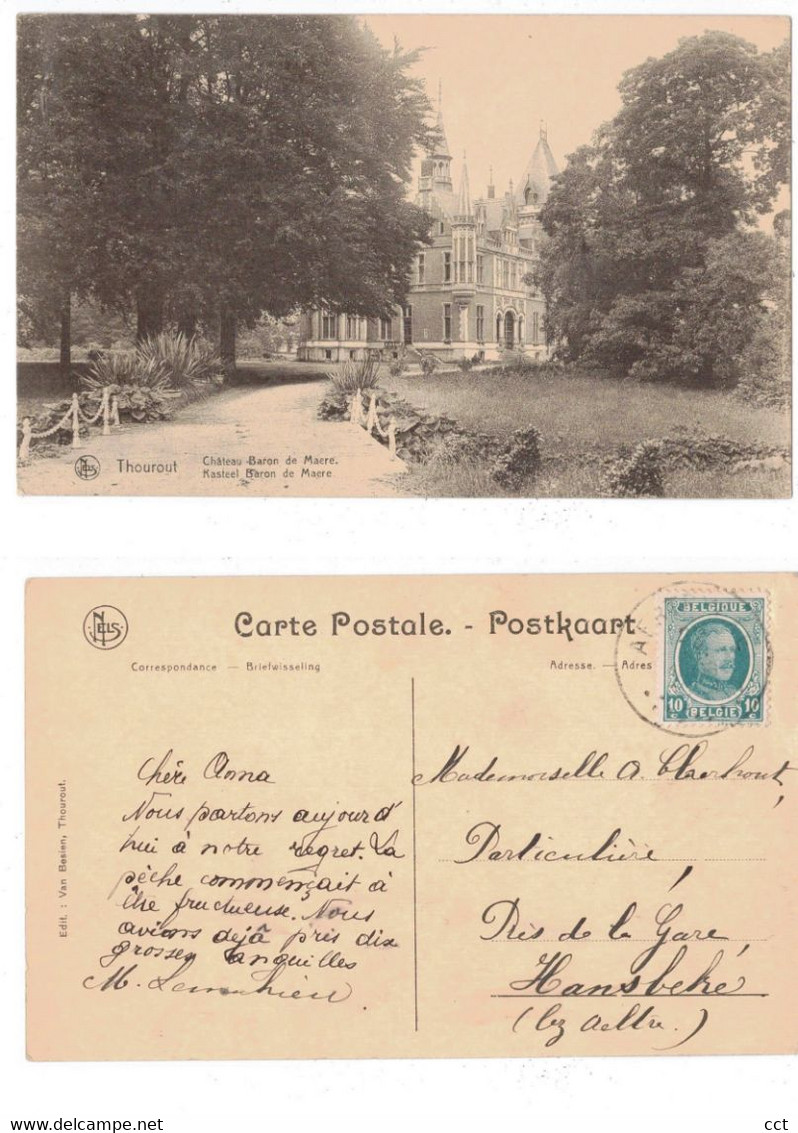 NELS
Thourout
Château Baron de Maere.
Kasteel Baron de Maere
NELS
Carte Postale. - Postkaart
Correspondance — Briefwisseling
Adresse. — Adres
BELGIQUE
10 c 10 c
BELGIË
Edit. : Van Besien, Thourout.
Chère Anna
Nous partons aujourd'
hui à notre regret. La
pêche commençait à
être fructueuse. Nous
avions déjà pris dix
grosses anguilles
M.
Mademoiselle A.
Particulière,
Près de la Gare,
Hansbeke
(lez Aeltre.)
cct